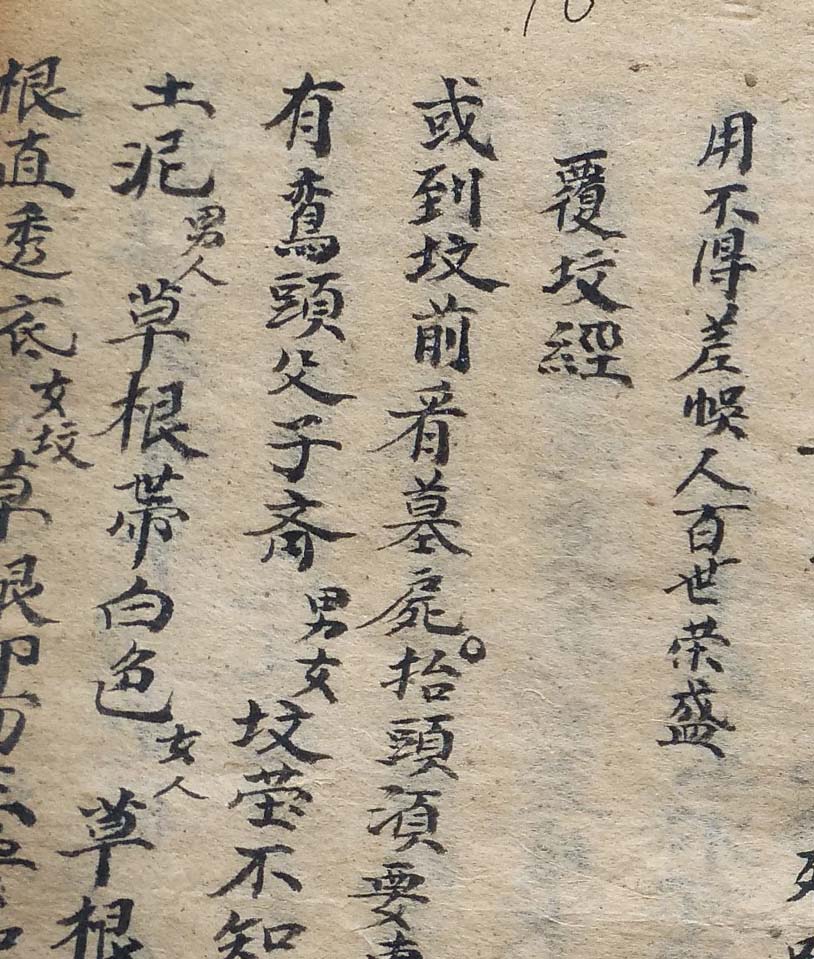 用不得差悞人百世荣盛
覆坟經
或到坟前看墓屍。抬頭須要
有鴛頭父子斎男女坟茔不知
土泥男人草根帶白色女人草根
根直透底女坟草根